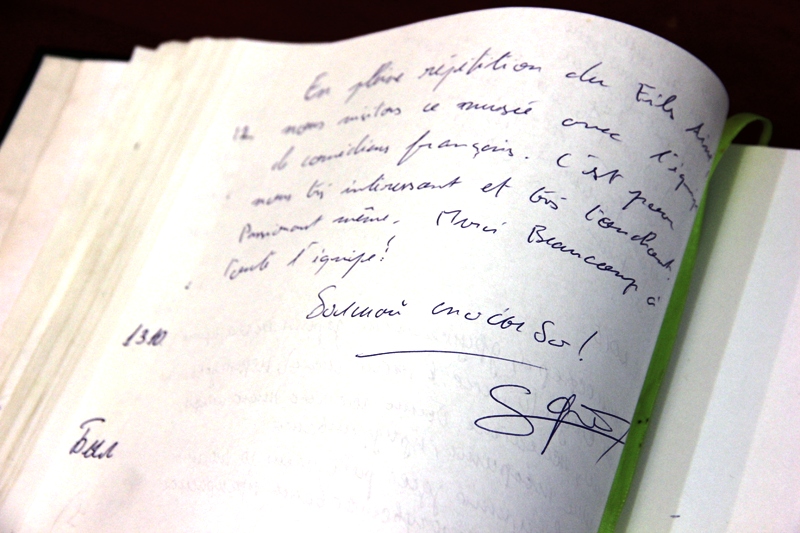 En pleine répétition du Fils Aîné
12. nous visitons ce musée avec l'équipe
de comédiens français. C'est pour
nous très intéressant et très touchant.
Passionant même. Merci Beaucoup à
toute l'équipe!
Большой спасибо!
13.10
Был